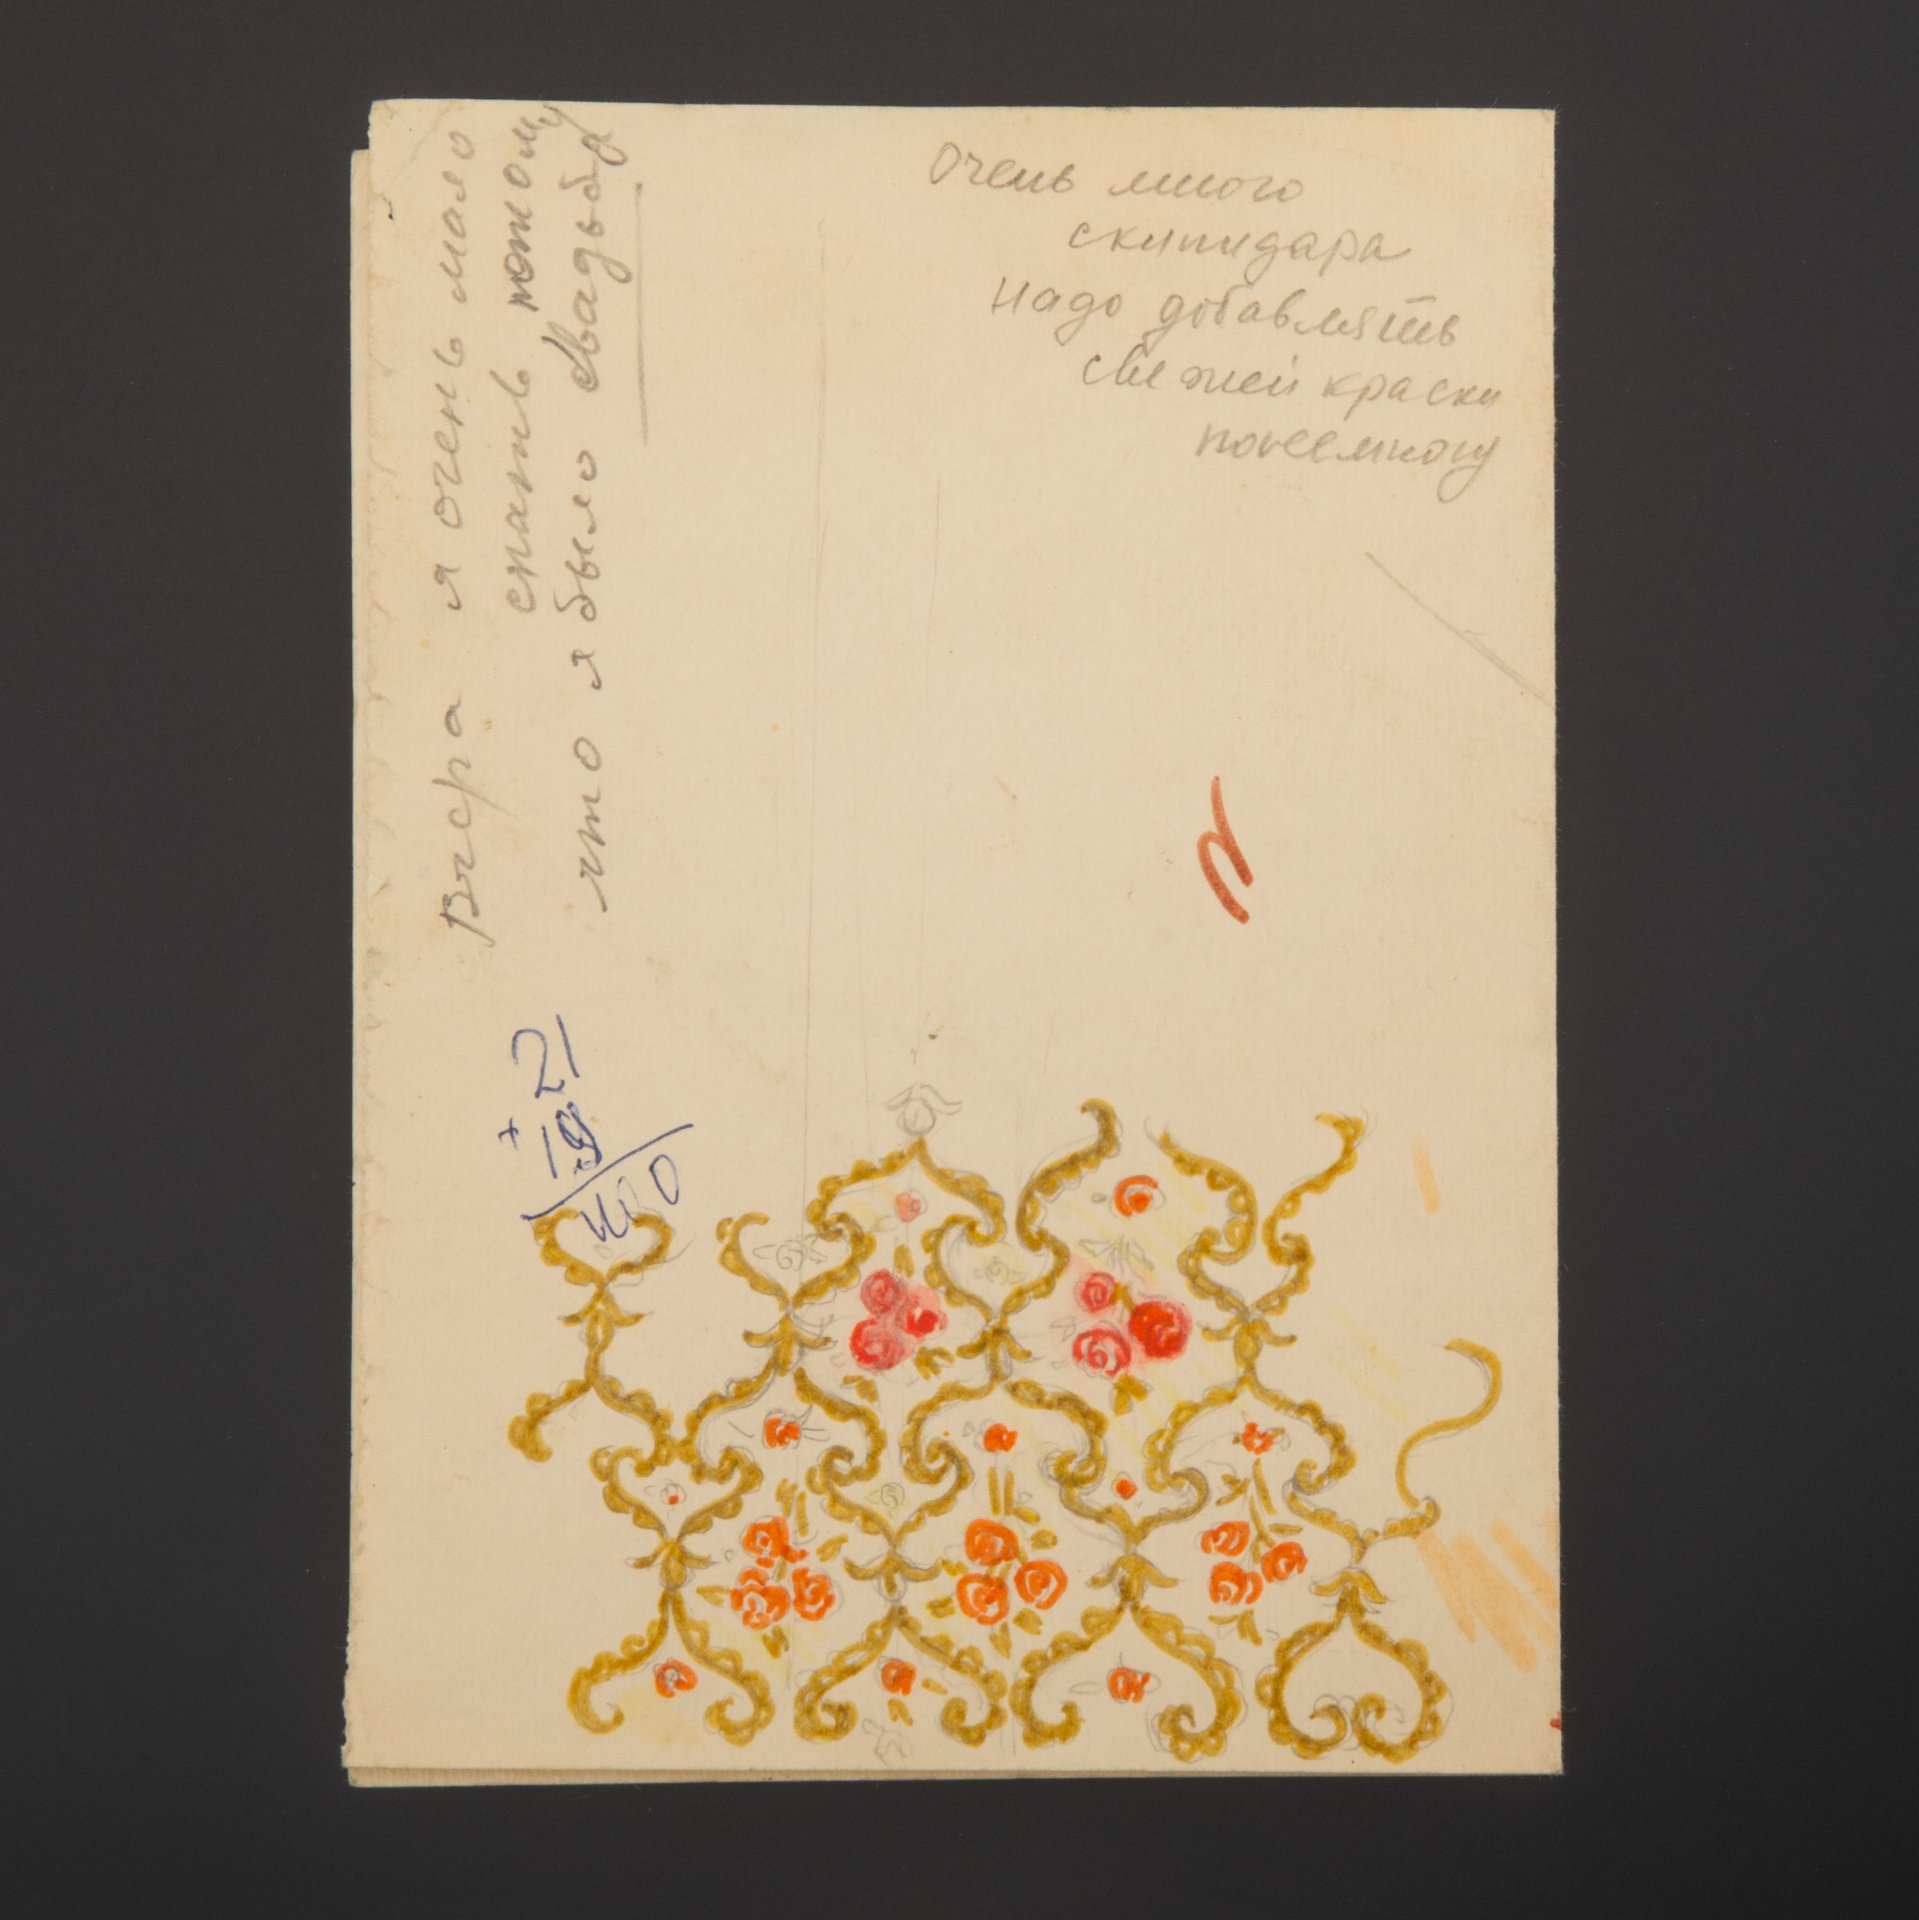 Очень много
скипидара
надо добавлять
свежей краски
понемногу
Вчера я очень мало
спать потому
что я было свадьбу
21
+ 19
40